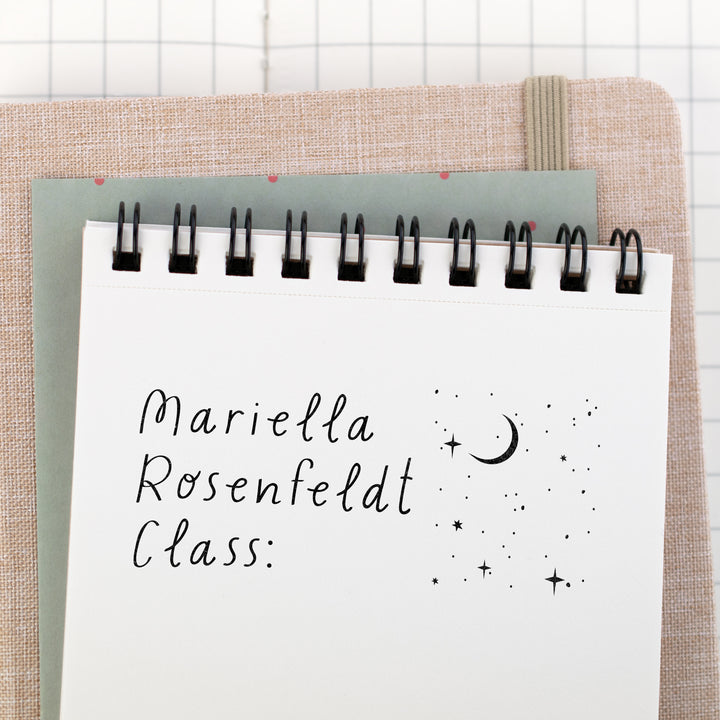 Mariella
Rosenfeldt
Class: